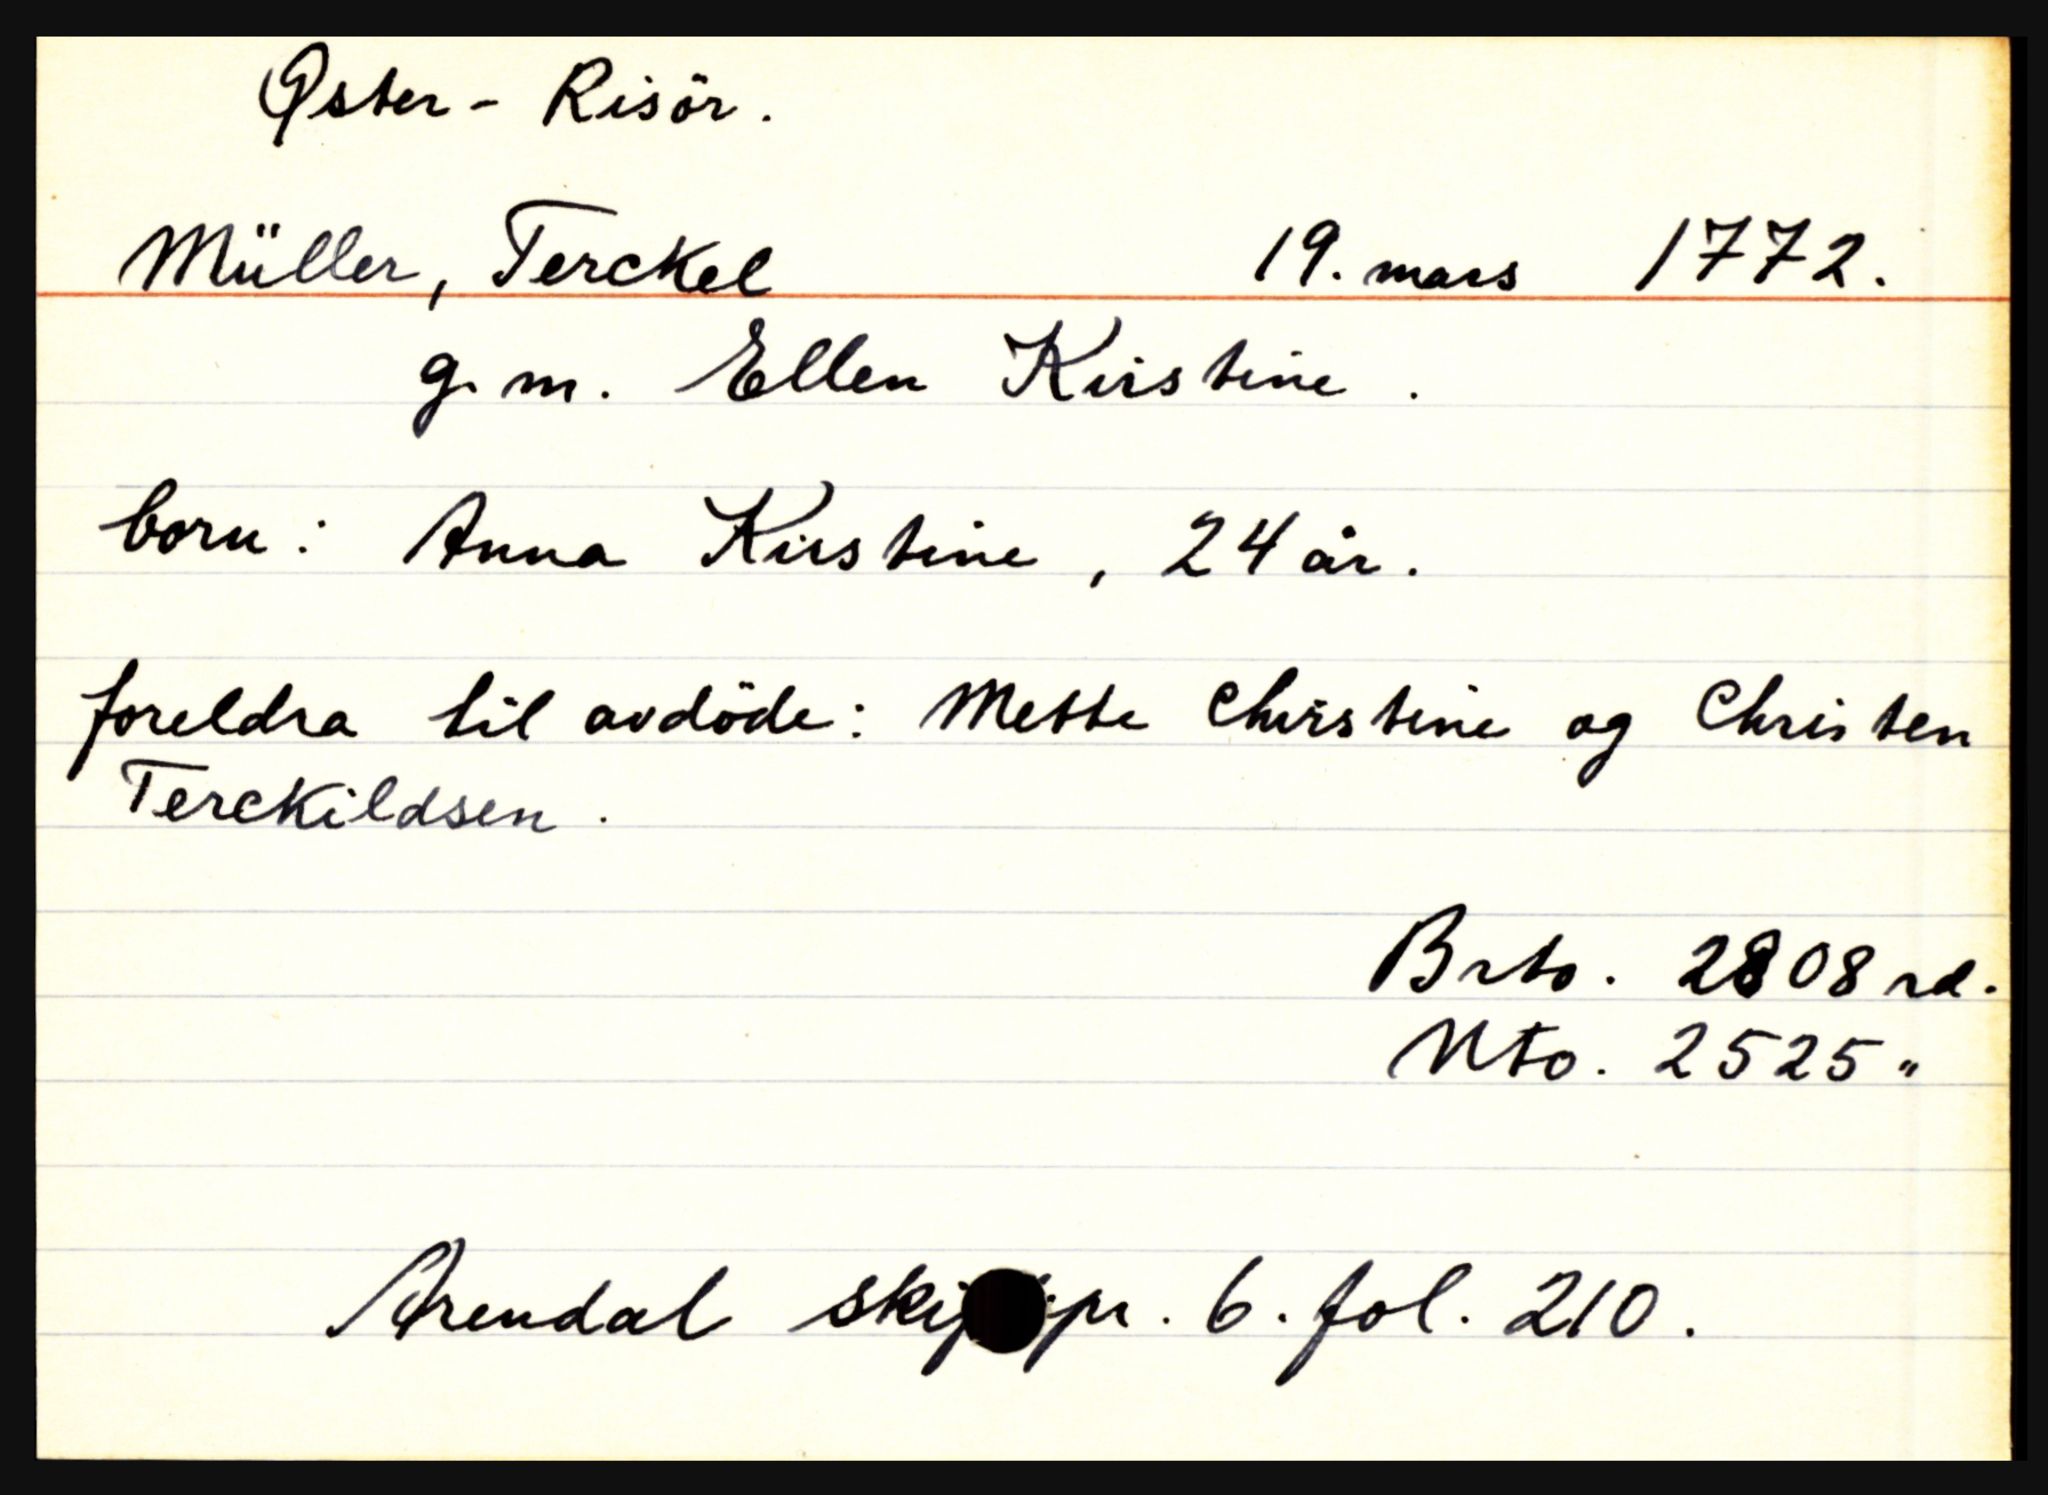 Øster - Risör.
Müller, Terckel 19. mars 1772.
g. m. Ellen Kirstine.
born: Anna Kirstine, 24 år.
foreldra til avdöde: Mette Christine og Christen
Terckildsen.
Brto. 2808 rd.
Nto. 2525 "
Arendal pr. 6. fol. 210.